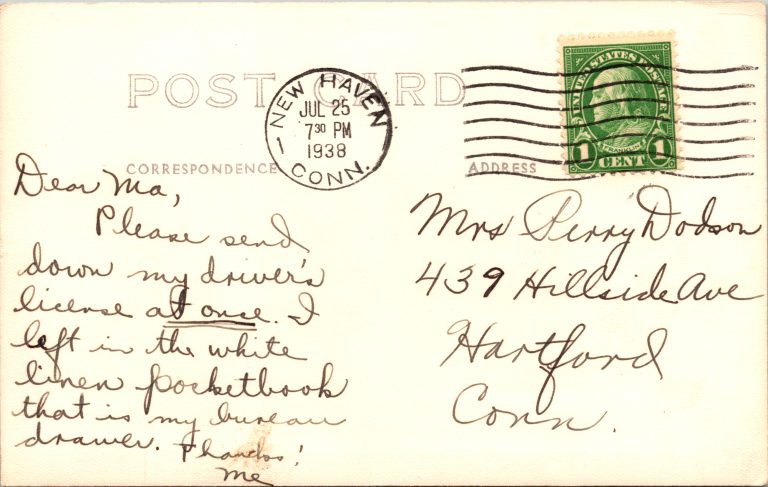 POST CARD
NEW HAVEN
JUL 25
7 30 PM
1938
CONN.
UNITED STATES POSTAGE
FRANKLIN
1 CENT 1
CORRESPONDENCE
ADDRESS
Dear Ma,
Please send
down my driver's
license at once. I
left in the white
linen pocketbook
that is my bureau
drawer. Thanks!
Me
Mrs Perry Dodson
439 Hillside Ave
Hartford
Conn.